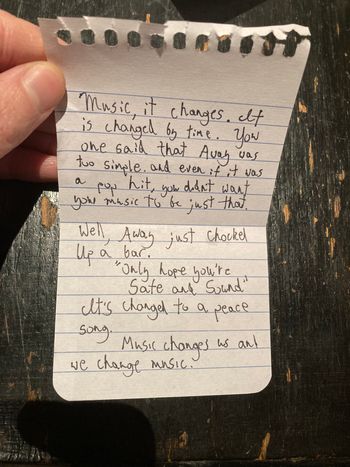 Music, it changes. It
is changed by time. You
one said that Away was
too simple. and even if it was
a pop hit, you didnt want
your music to be just that.
Well, Away just chocked
Up a bar.
"Only hope you're
Safe and Sound"
It's changed to a peace
song.
Music changes us and
we change music.